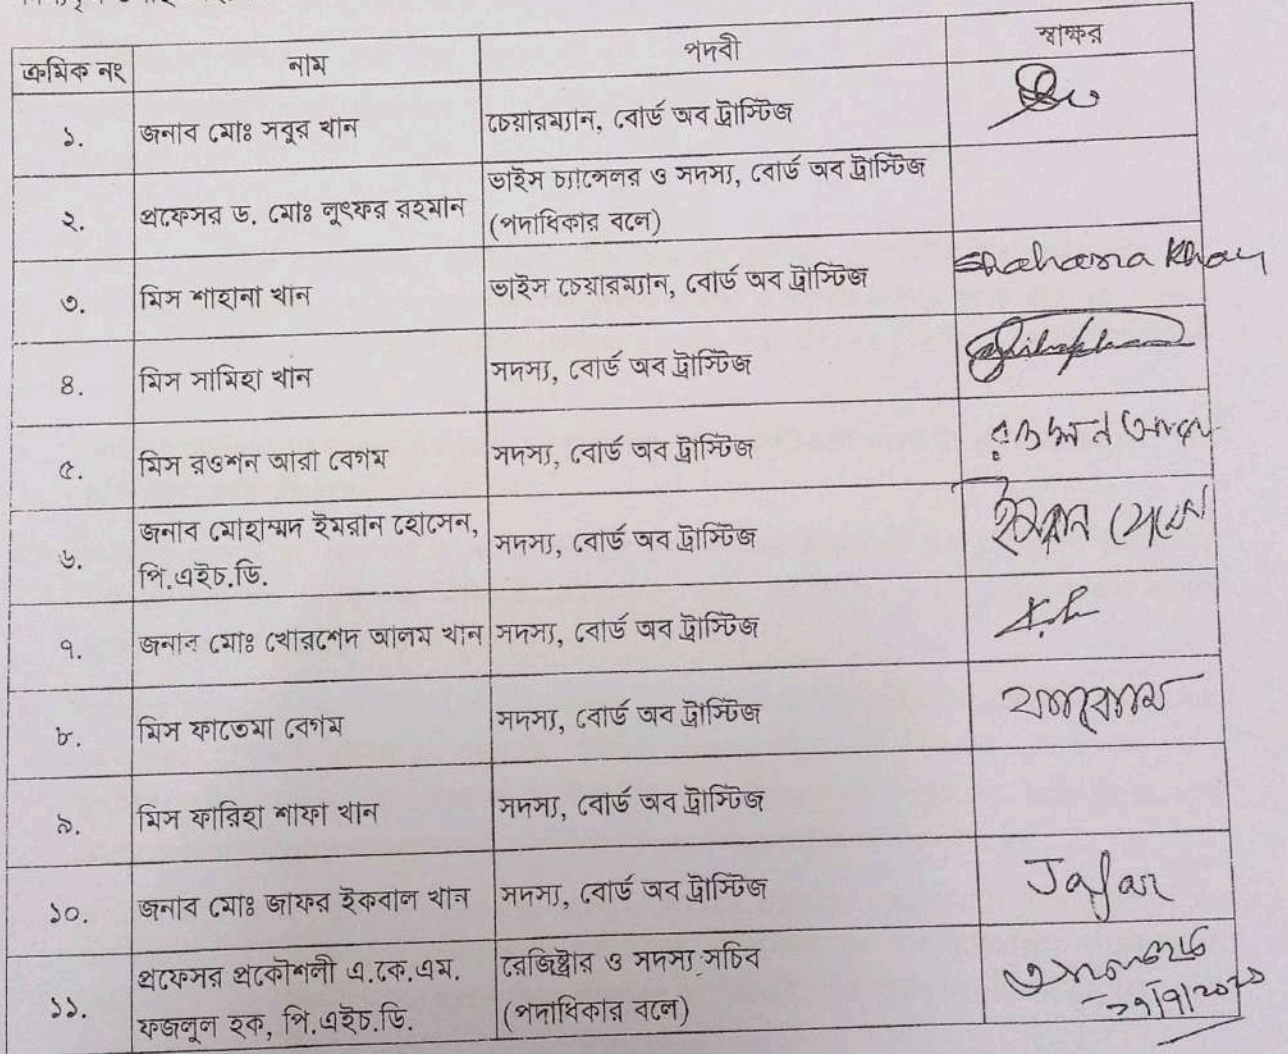 ক্রমিক নং নাম পদবী স্বাক্ষর
১. জনাব মোঃ সবুর খান চেয়ারম্যান, বোর্ড অব ট্রাস্টিজ
২. প্রফেসর ড. মোঃ লুৎফর রহমান ভাইস চ্যান্সেলর ও সদস্য, বোর্ড অব ট্রাস্টিজ
(পদাধিকার বলে)
৩. মিস শাহানা খান ভাইস চেয়ারম্যান, বোর্ড অব ট্রাস্টিজ Shahana Khan
৪. মিস সামিহা খান সদস্য, বোর্ড অব ট্রাস্টিজ
৫. মিস রওশন আরা বেগম সদস্য, বোর্ড অব ট্রাস্টিজ
৬. জনাব মোহাম্মদ ইমরান হোসেন, সদস্য, বোর্ড অব ট্রাস্টিজ
পি.এইচ.ডি.
৭. জনাব মোঃ খোরশেদ আলম খান সদস্য, বোর্ড অব ট্রাস্টিজ
৮. মিস ফাতেমা বেগম সদস্য, বোর্ড অব ট্রাস্টিজ
৯. মিস ফারিহা শাফা খান সদস্য, বোর্ড অব ট্রাস্টিজ
১০. জনাব মোঃ জাফর ইকবাল খান সদস্য, বোর্ড অব ট্রাস্টিজ Jafar
১১. প্রফেসর প্রকৌশলী এ.কে.এম. রেজিষ্ট্রার ও সদস্য সচিব
ফজলুল হক, পি.এইচ.ডি. (পদাধিকার বলে)